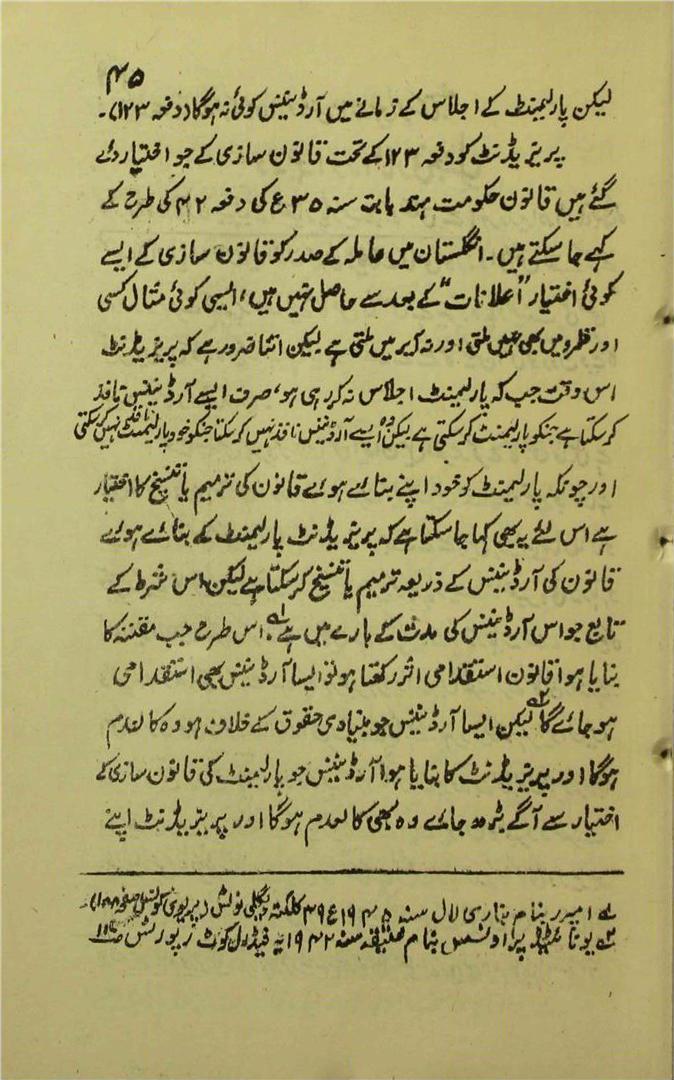 ۴۵
لیکن پارلیمنٹ کے اجلاس کے زمانے میں آرڈیننس کوئی نہ ہوگا (دفعہ ۱۲۳)۔
پریزیڈنٹ کو دفعہ ۱۲۳ کے تحت قانون سازی کے جو اختیار دئے
گئے ہیں قانون حکومت ہند بابت سنہ ۳۵ع کی دفعہ ۴۲ کی طرح کے
کہے جا سکتے ہیں۔ انگلستان میں عاملہ کے صدر کو قانون سازی کے ایسے
کوئی اختیار "اعلانات" کے بعد سے حاصل نہیں ہیں، ایسی کوئی مثال کسی
اور نظرو میں بھی نہیں ملتی اور نہ آیر میں ملتی ہے لیکن اتنا ضرور ہے کہ پریزیڈنٹ
اس وقت جب کہ پارلیمنٹ اجلاس نہ کر رہی ہو، صرف ایسے آرڈیننس نافذ
کر سکتا ہے جنکو پارلیمنٹ کر سکتی ہے لیکن وہ ایسے آرڈیننس نافذ نہیں کر سکتا جنکو خود پارلیمنٹ نافذ نہیں کر سکتی
اور چونکہ پارلیمنٹ کو خود اپنے بنائے ہوئے قانون کی ترمیم یا تنسیخ کا اختیار
ہے اس لئے یہ بھی کہا جا سکتا ہے کہ پریزیڈنٹ پارلیمنٹ کے بنائے ہوئے
قانون کی آرڈیننس کے ذریعہ ترمیم یا تنسیخ کر سکتا ہے لیکن اس شرط کے
تابع جو اس آرڈیننس کی مدت کے بارے میں ہے۱؎۔ اس طرح جب مقننہ کا
بنایا ہوا قانون استقدامی اثر رکھتا ہو تو ایسا آرڈیننس بھی استقدامی
ہو جائے گا۲؎ لیکن ایسا آرڈیننس جو بنیادی حقوق کے خلاف ہو وہ کالعدم
ہوگا اور پریزیڈنٹ کا بنایا ہوا آرڈیننس جو پارلیمنٹ کی قانون سازی کے
اختیار سے آگے بڑھ جائے وہ بھی کالعدم ہوگا اور پریزیڈنٹ اپنے
۱؎ امپرر بنام بنارسی لال سنہ ۱۹۴۵ع ۴۹ کلکتہ ویکلی نوٹس (پریوی کونسل)
۲؎ یونائیٹڈ پراونسس بنام عتیقہ سنہ ۱۹۴۲یہ فیڈرل کورٹ رپورٹس